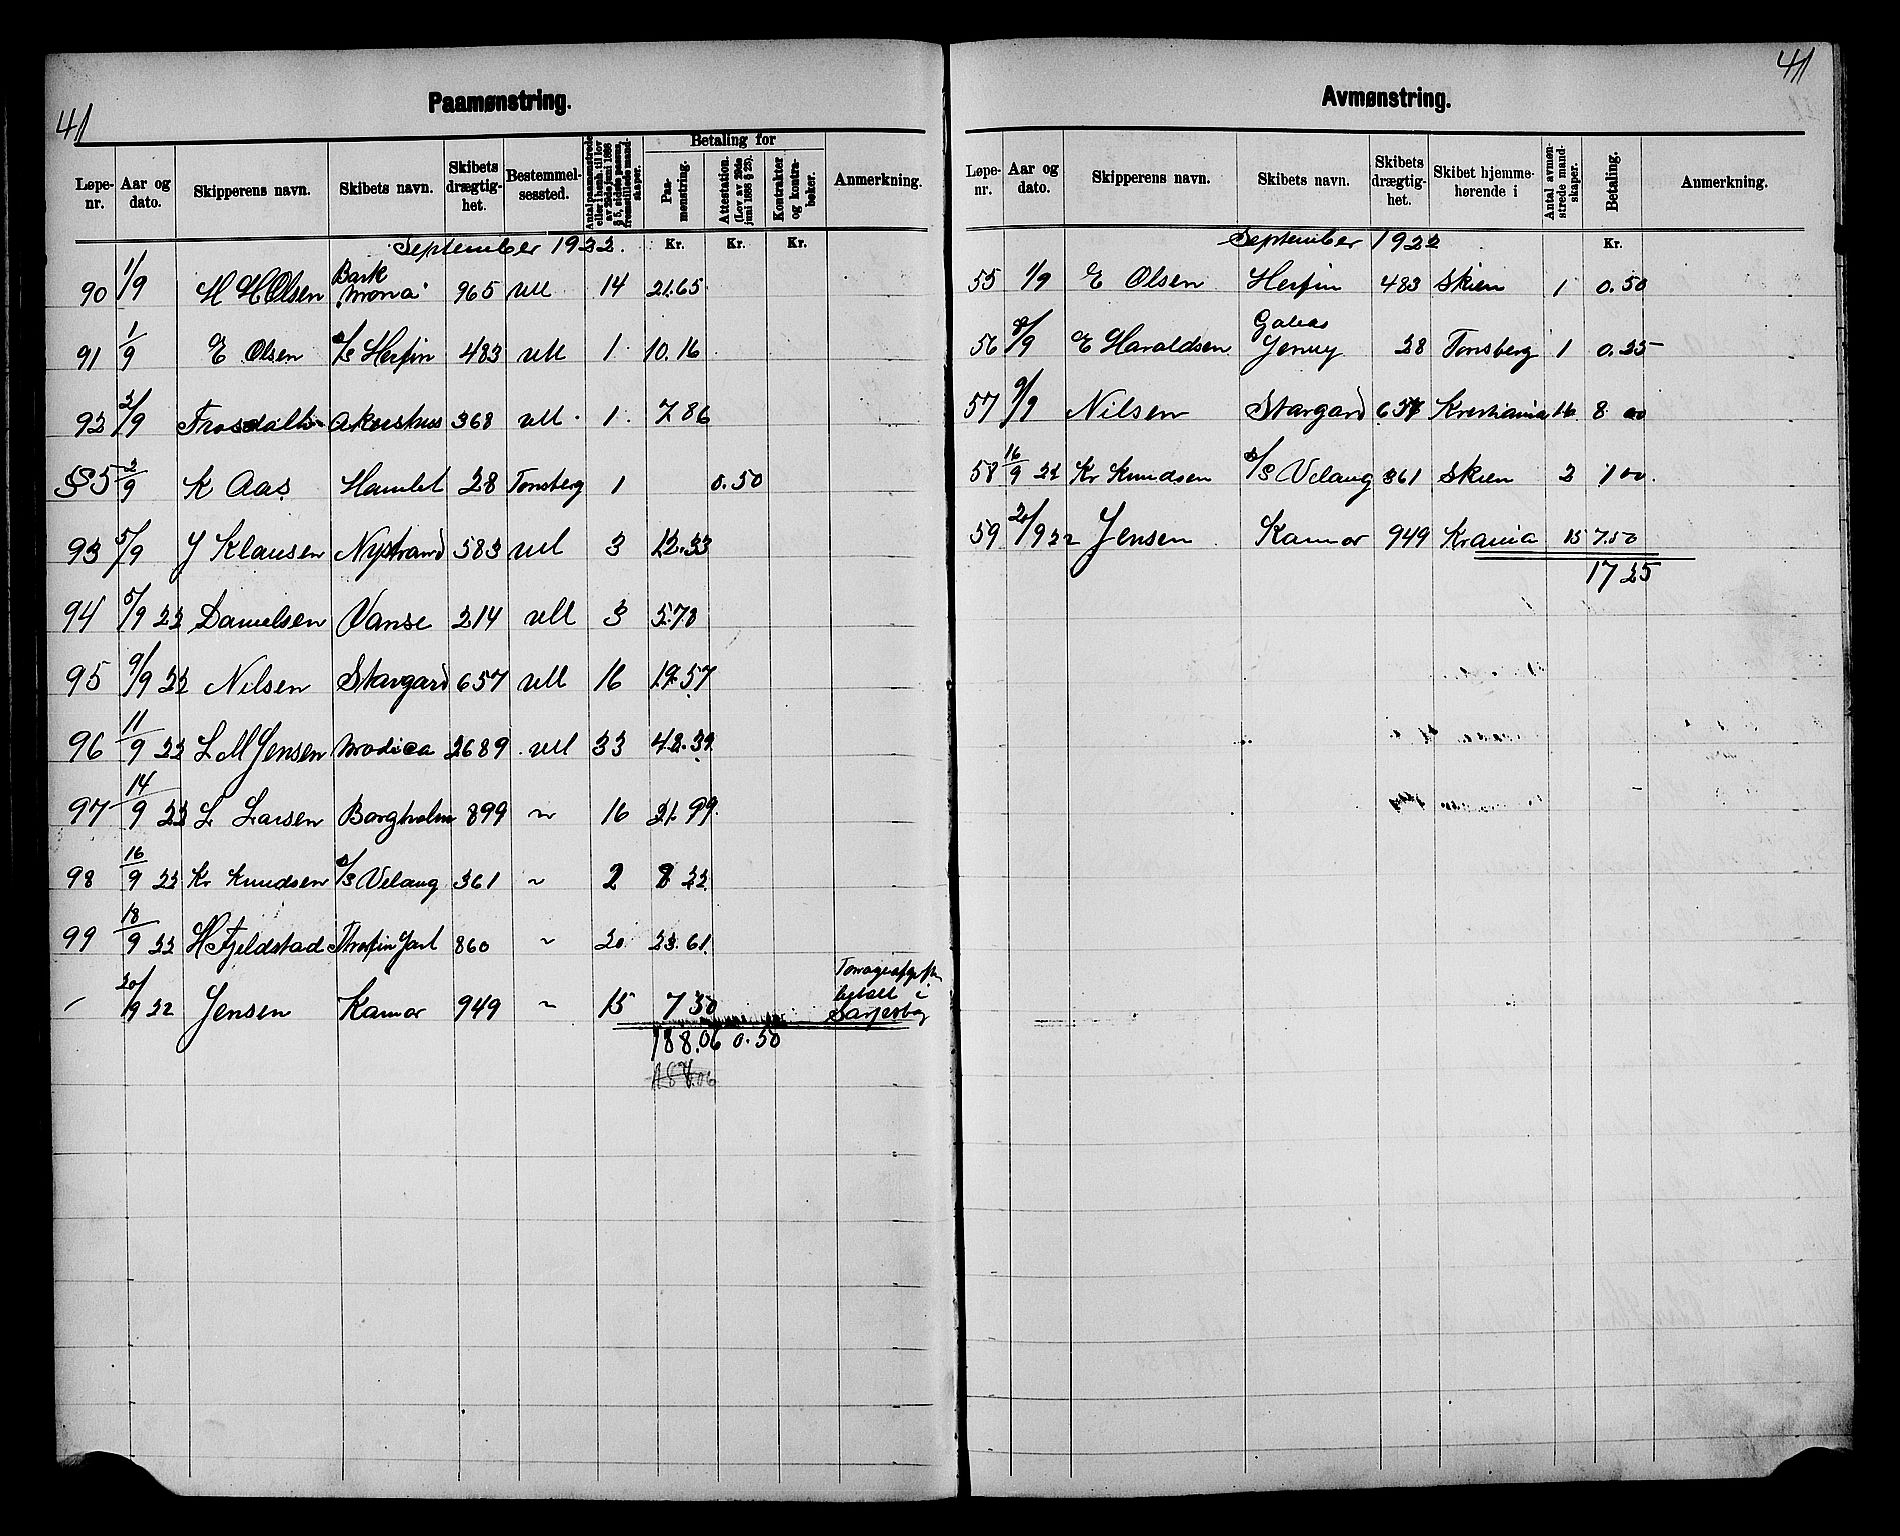 41
Paamønstring.
Løpe-nr. Aar og dato. Skipperens navn. Skibets navn. Skibets drægtighet. Bestemmelsessted. Antal paamønstrede eller i henh. til lov av 29de juni 1888 § 5, sidste passus, fremstillede mandskaper. Betaling for Paamønstring. Attestation. (Lov av 29de juni 1888 § 23). Kontrakter og kontrabøker. Anmerkning.
September 1922. Kr. Kr. Kr.
90 1/9 M H Olsen Bark "Mona" 965 vll 14 21.65
91 1/9 E Olsen Herfin 483 vll 1 10.16
92 2/9 Akershus 368 vll 1 7.86
§5 2/9 K Aas Hamlet 28 Tønsberg 1 0.50
93 5/9 J Klausen Nystrand 583 vll 3 12.33
94 5/9 22 Danielsen Vanse 214 vll 3 5.70
95 9/9 22 Nilsen Stargard 657 vll 16 19.57
96 11/9 22 L M Jensen Modica 2689 vll 33 42.39
97 14/9 22 L Larsen Borgholm 899 ~ 16 21.99
98 16/9 22 Kr Knudsen S/S Velaug 361 ~ 2 8 22
99 18/9 22 H Fjeldstad Thorfin Jarl 860 ~ 20 23.61
- 20/9 22 Jensen Kamor 949 ~ 15 7 50 betalt i Sarpsborg
188.06 0.50
41
Avmønstring.
Løpe-nr. Aar og dato. Skipperens navn. Skibets navn. Skibets drægtighet. Skibet hjemmehørende i Antal avmønstrede mandskaper. Betaling. Anmerkning.
September 1922 Kr.
55 1/9 E Olsen Herfin 483 Skien 1 0.50
56 8/9 E Haraldsen Galeas Jenny 28 Tønsberg 1 0.25
57 9/9 Nilsen Stargard 657 Kristiania 16 8 00
58 16/9 22 Kr Knudsen S/S Velaug 361 Skien 2 1 00
59 20/9 22 Jensen Kamor 949 Krania 15 7.50
17 25